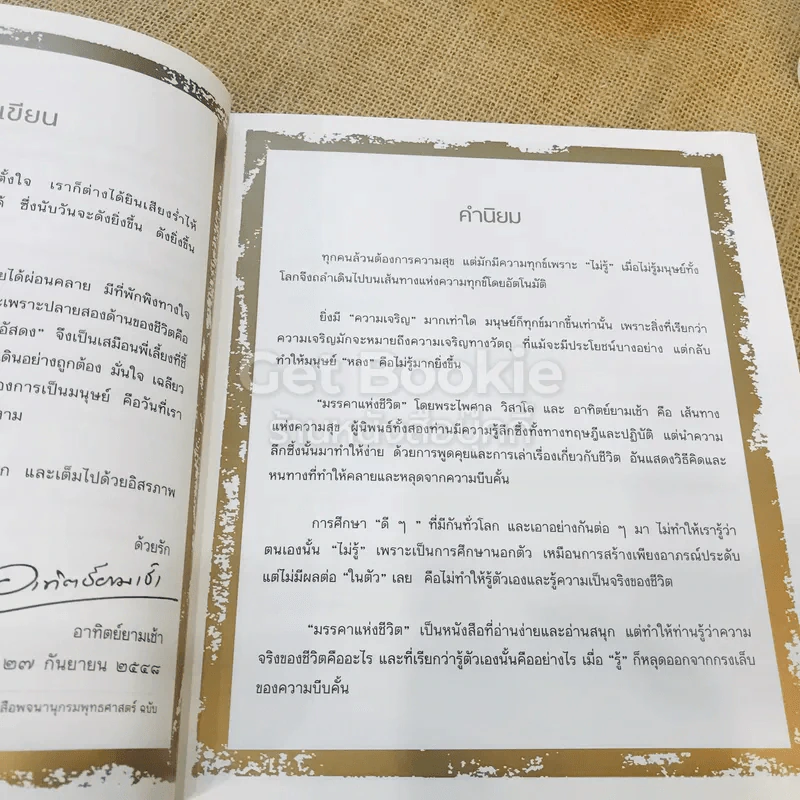 เขียน
ตั้งใจ เราก็ต่างได้ยินเสียงร่ำไห้
ซึ่งนับวันจะดังยิ่งขึ้น ดังยิ่งขึ้น
ได้ผ่อนคลาย มีที่พักพิงทางใจ
เพราะปลายสองด้านของชีวิตคือ
อัสดง” จึงเป็นเสมือนพี่เลี้ยงที่ชี้
เดินอย่างถูกต้อง มั่นใจ เฉลียว
องการเป็นมนุษย์ คือวันที่เรา
าม
ก และเต็มไปด้วยอิสรภาพ
ด้วยรัก
อาทิตย์ยามเช้า
อาทิตย์ยามเช้า
๒๗ กันยายน ๒๕๔๘
สือพจนานุกรมพุทธศาสตร์ ฉบับ
คำนิยม
ทุกคนล้วนต้องการความสุข แต่มักมีความทุกข์เพราะ “ไม่รู้” เมื่อไม่รู้มนุษย์ทั้ง
โลกจึงถลำเดินไปบนเส้นทางแห่งความทุกข์โดยอัตโนมัติ
ยิ่งมี “ความเจริญ” มากเท่าใด มนุษย์ก็ทุกข์มากขึ้นเท่านั้น เพราะสิ่งที่เรียกว่า
ความเจริญมักจะหมายถึงความเจริญทางวัตถุ ที่แม้จะมีประโยชน์บางอย่าง แต่กลับ
ทำให้มนุษย์ “หลง” คือไม่รู้มากยิ่งขึ้น
Get Bookie
“มรรคาแห่งชีวิต” โดยพระไพศาล วิสาโล และ อาทิตย์ยามเช้า คือ เส้นทาง
แห่งความสุข ผู้นิพนธ์ทั้งสองท่านมีความรู้ลึกซึ้งทั้งทางทฤษฎีและปฏิบัติ แต่นำความ
ลึกซึ้งนั้นมาทำให้ง่าย ด้วยการพูดคุยและการเล่าเรื่องเกี่ยวกับชีวิต อันแสดงวิธีคิดและ
หนทางที่ทำให้คลายและหลุดจากความบีบคั้น
การศึกษา “ดี ๆ ” ที่มีกันทั่วโลก และเอาอย่างกันต่อ ๆ มา ไม่ทำให้เรารู้ว่า
ตนเองนั้น “ไม่รู้” เพราะเป็นการศึกษานอกตัว เหมือนการสร้างเพียงอาภรณ์ประดับ
แต่ไม่มีผลต่อ “ในตัว” เลย คือไม่ทำให้รู้ตัวเองและรู้ความเป็นจริงของชีวิต
“มรรคาแห่งชีวิต” เป็นหนังสือที่อ่านง่ายและอ่านสนุก แต่ทำให้ท่านรู้ว่าความ
จริงของชีวิตคืออะไร และที่เรียกว่ารู้ตัวเองนั้นคืออย่างไร เมื่อ “รู้” ก็หลุดออกจากกรงเล็บ
ของความบีบคั้น